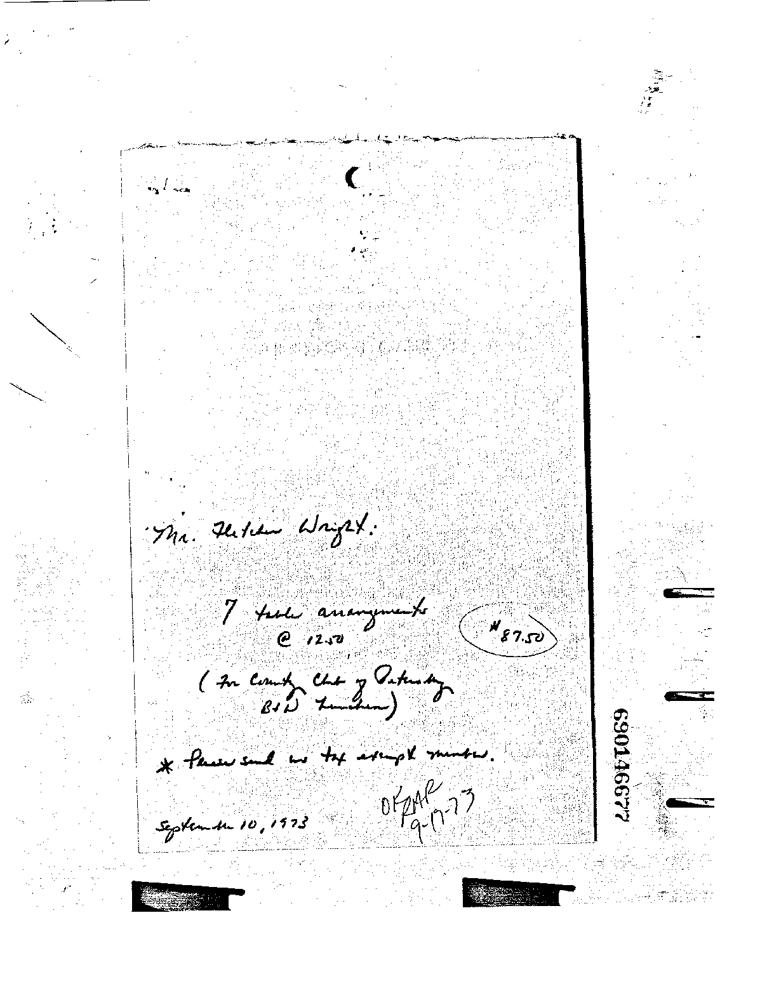 Mr. Fletcher Wright:
7 table arrangements
@ 12.50
$87.50
(For Country Club of Petersburg
B&W Luncheon)
* Please send us tax exempt number.
OK RAR
9-17-73
September 10, 1973
690146677